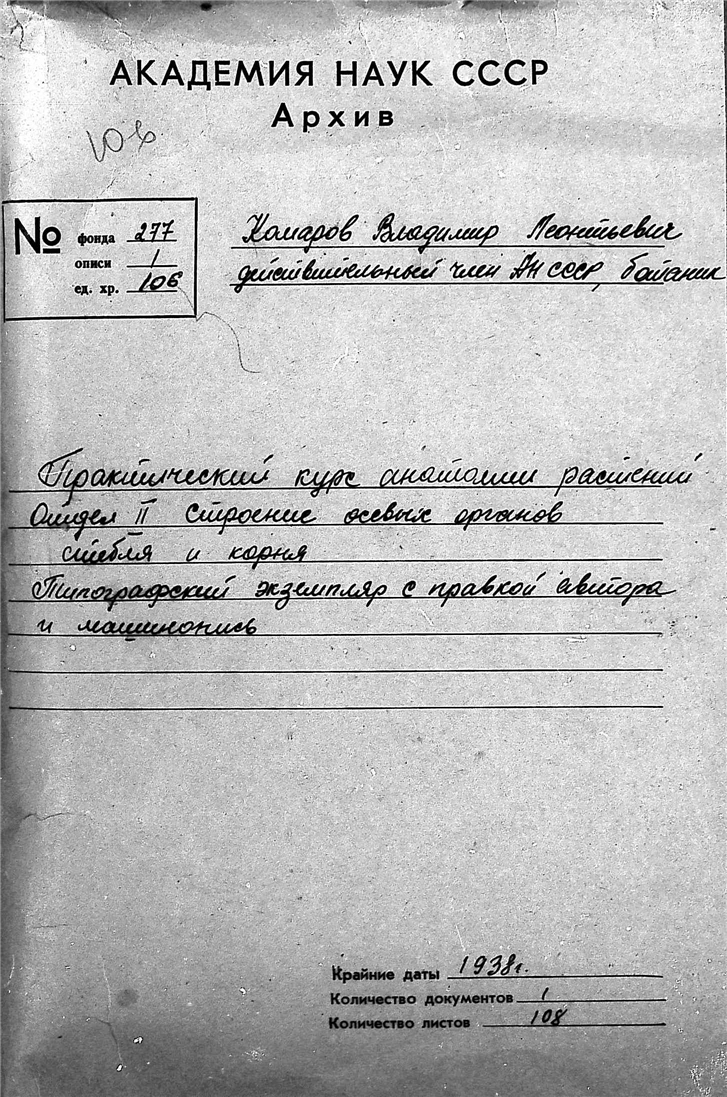 АКАДЕМИЯ НАУК СССР
Архив
106
№ фонда 277
описи 1
ед. хр. 106
Комаров Владимир Леонтьевич
действительный член АН СССР, ботаник
Практический курс анатомии растений
Отдел II Строение осевых органов
стебля и корня
Типографский экземпляр с правкой автора
и машинопись
Крайние даты 1938г.
Количество документов 1
Количество листов 108